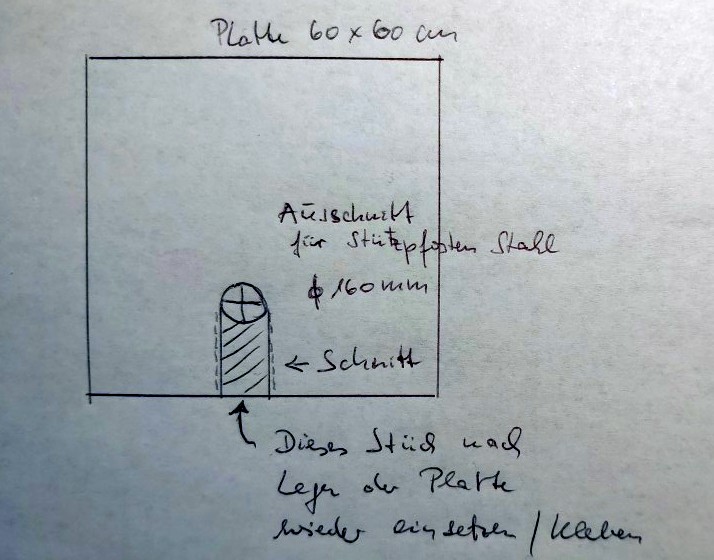 Platte 60 x 60 cm
Ausschnitt
für Stützpfosten Stahl
ϕ 160 mm
← Schnitt
Dieses Stück nach
Legen der Platte
wieder einsetzen / kleben